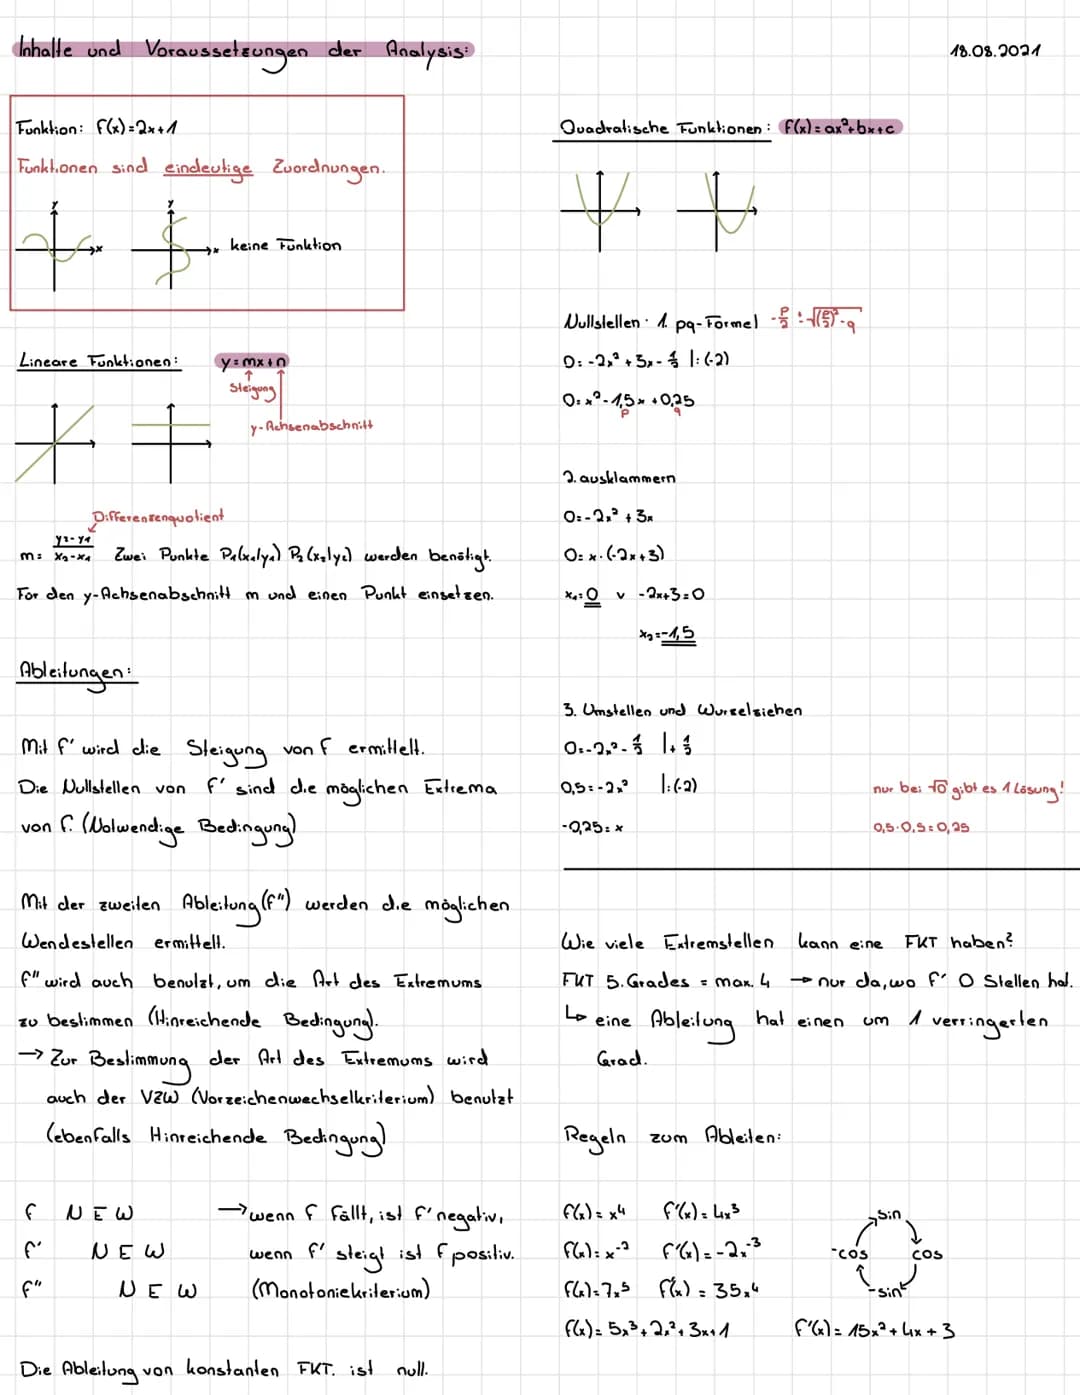 Inhalte und Voraussetzungen der Analysis:
18.08.2021
Funktion: f(x)=2x+1
Funktionen sind eindeutige Zuordnungen.
y
x
y
x
keine Funktion
Lineare Funktionen:
y=mx+n
Steigung
y-Achsenabschnitt
Differenzenquotient
m= y2-y1 / x2-x1 Zwei Punkte P1(x1|y1) P2(x2|y2) werden benötigt.
Für den y-Achsenabschnitt m und einen Punkt einsetzen.
Ableitungen:
Mit f' wird die Steigung von f ermittelt.
Die Nullstellen von f' sind die möglichen Extrema
von f. (Notwendige Bedingung)
Mit der zweiten Ableitung (f'') werden die möglichen
Wendestellen ermittelt.
f'' wird auch benutzt, um die Art des Extremums
zu bestimmen (Hinreichende Bedingung).
→ Zur Bestimmung der Art des Extremums wird
auch der VZW (Vorzeichenwechselkriterium) benutzt
(ebenfalls Hinreichende Bedingung)
f N E W
f' N E W
f'' N E W
→ wenn f fällt, ist f' negativ,
wenn f' steigt ist f positiv.
(Monotoniekriterium)
Die Ableitung von konstanten FKT. ist null.
Quadratische Funktionen: f(x)=ax²+bx+c
Nullstellen: 1. pq-Formel -p/2 ± √(p/2)²-q
0=-2x²+3x-1/2 |:(-2)
0=x²-1,5x+0,25
p q
2. ausklammern
0=-2x²+3x
0=x·(-2x+3)
x1=0 v -2x+3=0
x2=-1,5
3. Umstellen und Wurzelziehen
0=-2x²-1/2 |+1/2
0,5=-2x² |:(-2)
-0,25=x
nur bei √0 gibt es 1 Lösung!
0,5·0,5=0,25
Wie viele Extremstellen kann eine FKT haben?
FKT 5. Grades = max. 4 → nur da, wo f' 0 Stellen hat.
↳ eine Ableitung hat einen um 1 verringerten
Grad.
Regeln zum Ableiten:
f(x)=x⁴ f'(x)=4x³
f(x)=x⁻² f'(x)=-2x⁻³
f(x)=7x⁵ f'(x)=35x⁴
f(x)=5x³+2x²+3x+1 f'(x)=15x²+4x+3
sin
-cos cos
-sin